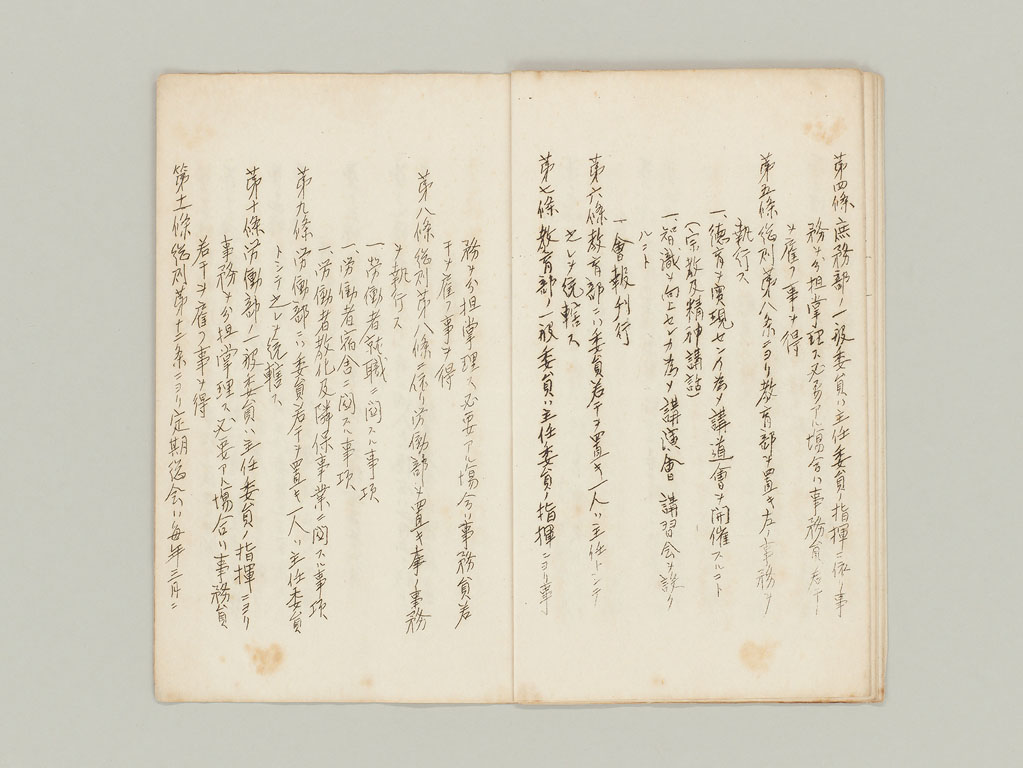 第四條 庶務部ノ一般委員ハ主任委員ノ指揮ニ依リ事
務ヲ分担掌理ス必要アル場合ハ事務員若干
ヲ雇フ事ヲ得
第五條 総則第八条ニヨリ教育部ヲ置キ左ノ事務ヲ
執行ス
一、徳育ヲ實現センガ為メ講道會ヲ開催スルコト
(宗教及精神講話)
一、智識ノ向上センガ為メ講演會 講習会ヲ設ク
ルコト
一 會報刊行
第六條 教育部ニハ委員若干ヲ置キ一人ハ主任トシテ
之レヲ統轄ス
第七條 教育部ノ一般委員ハ主任委員ノ指揮ニヨリ事
務ヲ分担掌理ス必要アル場合ハ事務員若
干ヲ雇フ事ヲ得
第八條 総則第八條ニ依リ労働部ヲ置キ事務
ヲ執行ス
一、労働者就職ニ関スル事項
一、労働者宿舎ニ関スル事項
一、労働者教化及隣保事業ニ関スル事項
第九條 労働部ニハ委員若干ヲ置キ一人ハ主任委員
トシテ之レヲ統轄ス
第十條 労働部ノ一般委員ハ主任委員ノ指揮ニヨリ
事務ヲ分担掌理ス必要アル場合ハ事務員
若干ヲ雇フ事ヲ得
第十一條 総則第十二条ニヨリ定期総会ハ毎年三月ニ